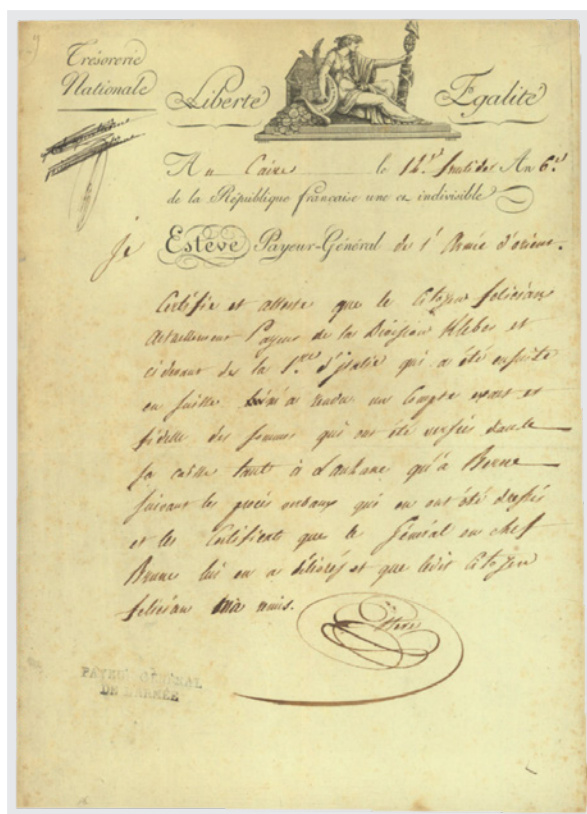 Trésorerie
Nationale
Liberté
Egalité
Au Caire le 14. fructidor An 6.
de la République française une et indivisible
Je Estève Payeur-Général de l'Armée d'orient.
Certifie et atteste que le Citoyen felician
actuellement Payeur de la Division Kleber et
cidevant de la d'italie qui a été ensuite
en a rendu un Compte exact et
fidelle des sommes qui ont été versées dans le
sa caisse tant à Lauzane qu'à Berne
suivant les procès verbaux qui en ont été dressés
et les Certificats que le Général en chef
Brune lui en a délivrés et que ledit Citoyen
felician m'a remis.
Esteve
PAYEUR GÉNÉRAL
DE L'ARMÉE